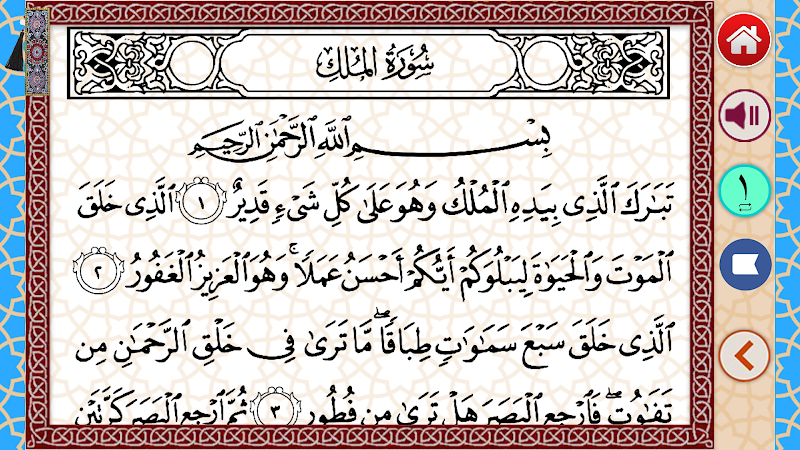 سُورَةُ الْمُلْكِ
بِسْمِ اللَّهِ الرَّحْمَٰنِ الرَّحِيمِ
تَبَٰرَكَ ٱلَّذِى بِيَدِهِ ٱلْمُلْكُ وَهُوَ عَلَىٰ كُلِّ شَىْءٍ قَدِيرٌ ١ ٱلَّذِى خَلَقَ
ٱلْمَوْتَ وَٱلْحَيَوٰةَ لِيَبْلُوَكُمْ أَيُّكُمْ أَحْسَنُ عَمَلًا ۚ وَهُوَ ٱلْعَزِيزُ ٱلْغَفُورُ ٢
ٱلَّذِى خَلَقَ سَبْعَ سَمَٰوَٰتٍ طِبَاقًا ۖ مَّا تَرَىٰ فِى خَلْقِ ٱلرَّحْمَٰنِ مِن
تَفَٰوُتٍ ۖ فَٱرْجِعِ ٱلْبَصَرَ هَلْ تَرَىٰ مِن فُطُورٍ ٣ ثُمَّ ٱرْجِعِ ٱلْبَصَرَ كَرَّتَيْنِ
١